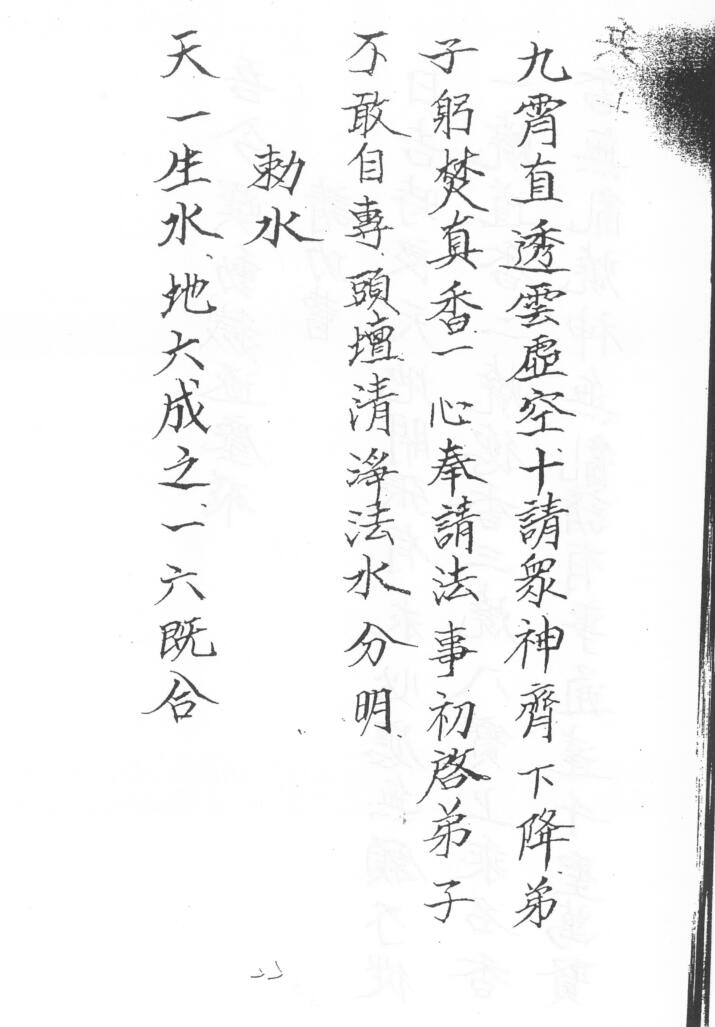 九霄直透雲虛空十請眾神齊下降弟
子躬焚真香一心奉請法事初啓弟子
不敢自專頭壇清淨法水分明
勅水
天一生水、地六成之、一六既合